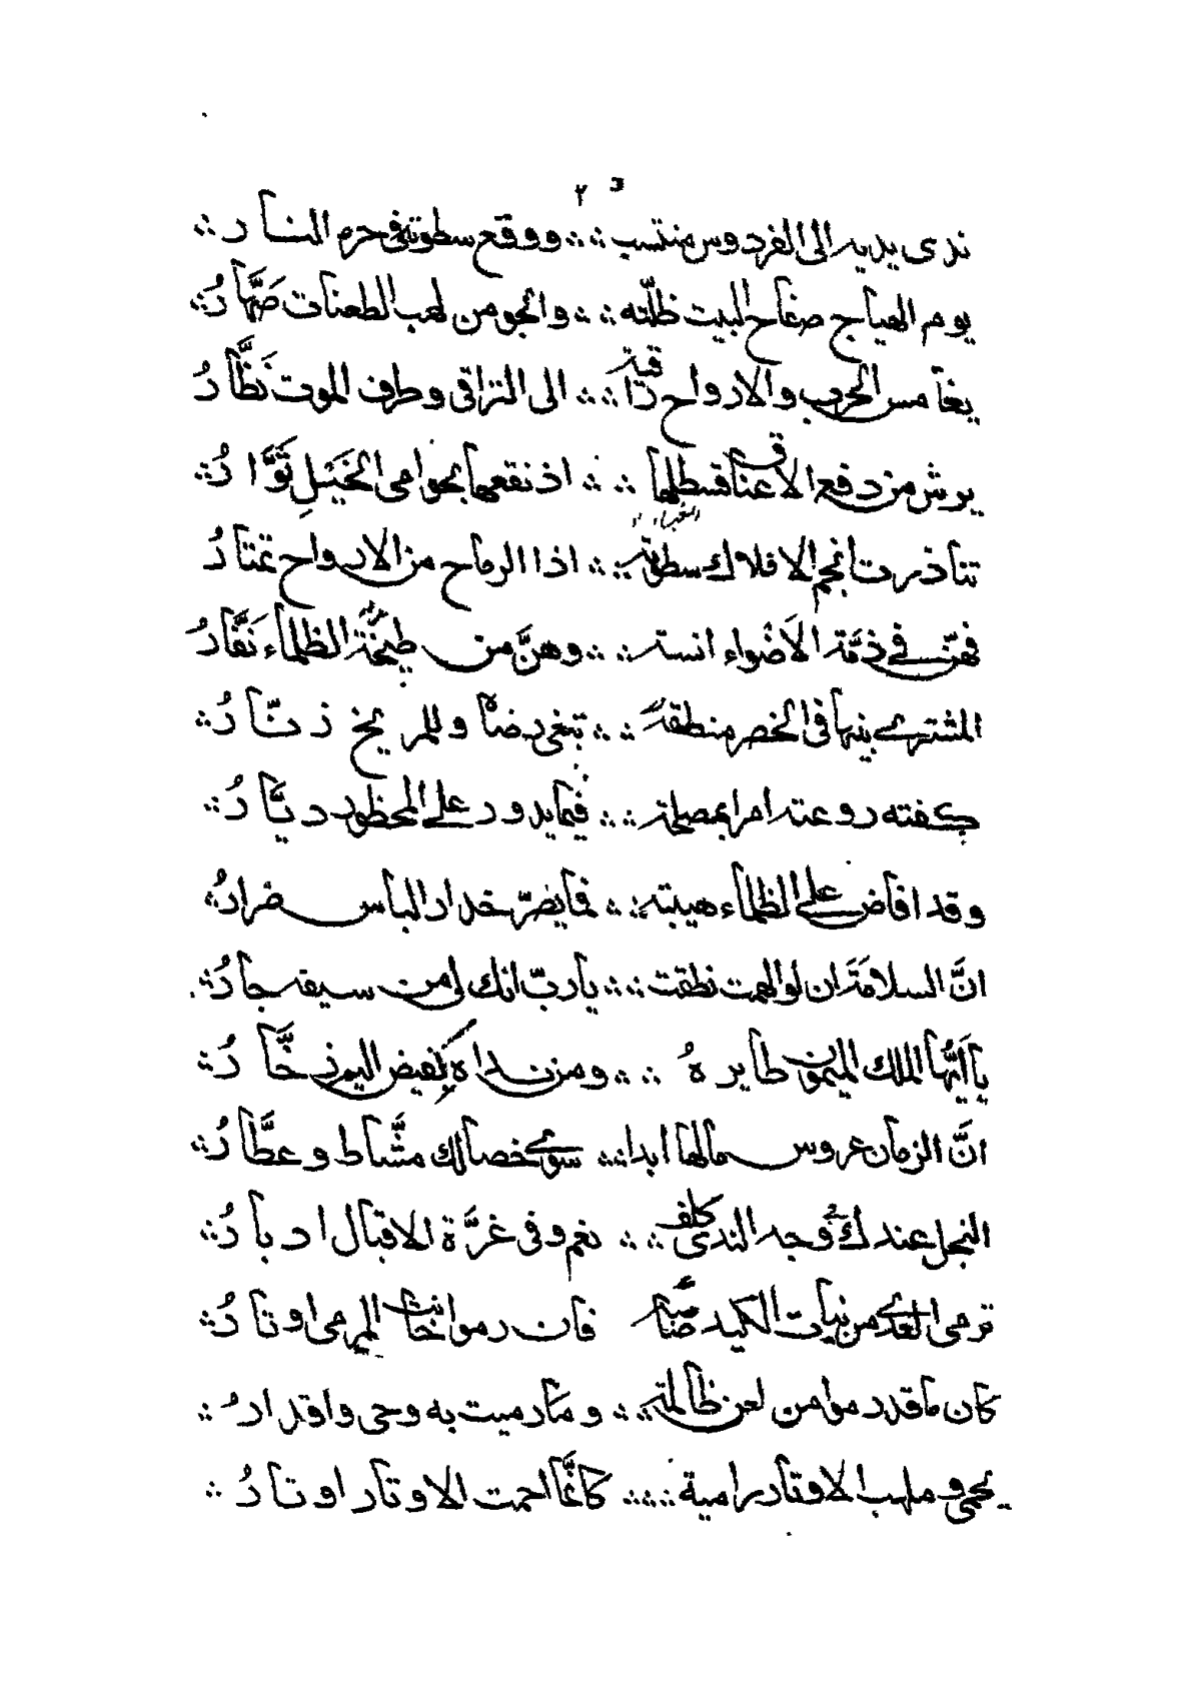 ٢
ندى يديه الى الفردوس منتسب ∴ ووقع سطوته في حرم النار ∴
يوم الهياج صفاح البيت ظلّته ∴ والجو من لهب الطعنات صَهَّارُ ∴
يغامس الحرب والارواح راقية ∴ الى التراقى وطرف الموت نَظَّارُ
يرش من دفع الاعناق قسطلها ∴ اذ نقعها بحوامى الخَيْلِ ثَوَّارُ ∴
تناذرت انجم الافلاك سطوته ∴ اذا الرماح من الارواح تمتارُ
فهنّ في ذمّة الاَضْواء انسة ∴ وهنَّ من طيخة الظلماء نَفَّارُ
المشترى بينها في الخصر منطقة ∴ تبغى رضاه وللمريخ زنّارُ ∴
كفته روعته امرا بمصلحة ∴ فيما يدور على المحظور ديّارُ ∴
وقد افاض على الظلماء هيبته ∴ فما يضرّ خدار الباس ضرارُ
انَّ السلامَةَ ان لو الهمت نطقت ∴ يارب انك لى من سيفه جارُ ∴
يا اَيُّها الملك الميمون طايرهُ ∴ ومن نداه بفيض اليم زخَّارُ ∴
انَّ الزمان عروس مالها ابدا ∴ سوى خصالك مشَّاط وعطَّارُ ∴
البخل عندك في وجه الندى كلف ∴ نعم وفى غرَّة الاقبال ادبارُ ∴
ترمى العدى من نيات الكيد صائبة فان رموا خانت المرمى اوتارُ ∴
كان ما قد رموا من لعن ظالمة ∴ وما رميت به وحى واقدارُ ∴
يحمى وملهب الاوتار رامية ∴ كانّما احمت الاوتار اوتارُ ∴